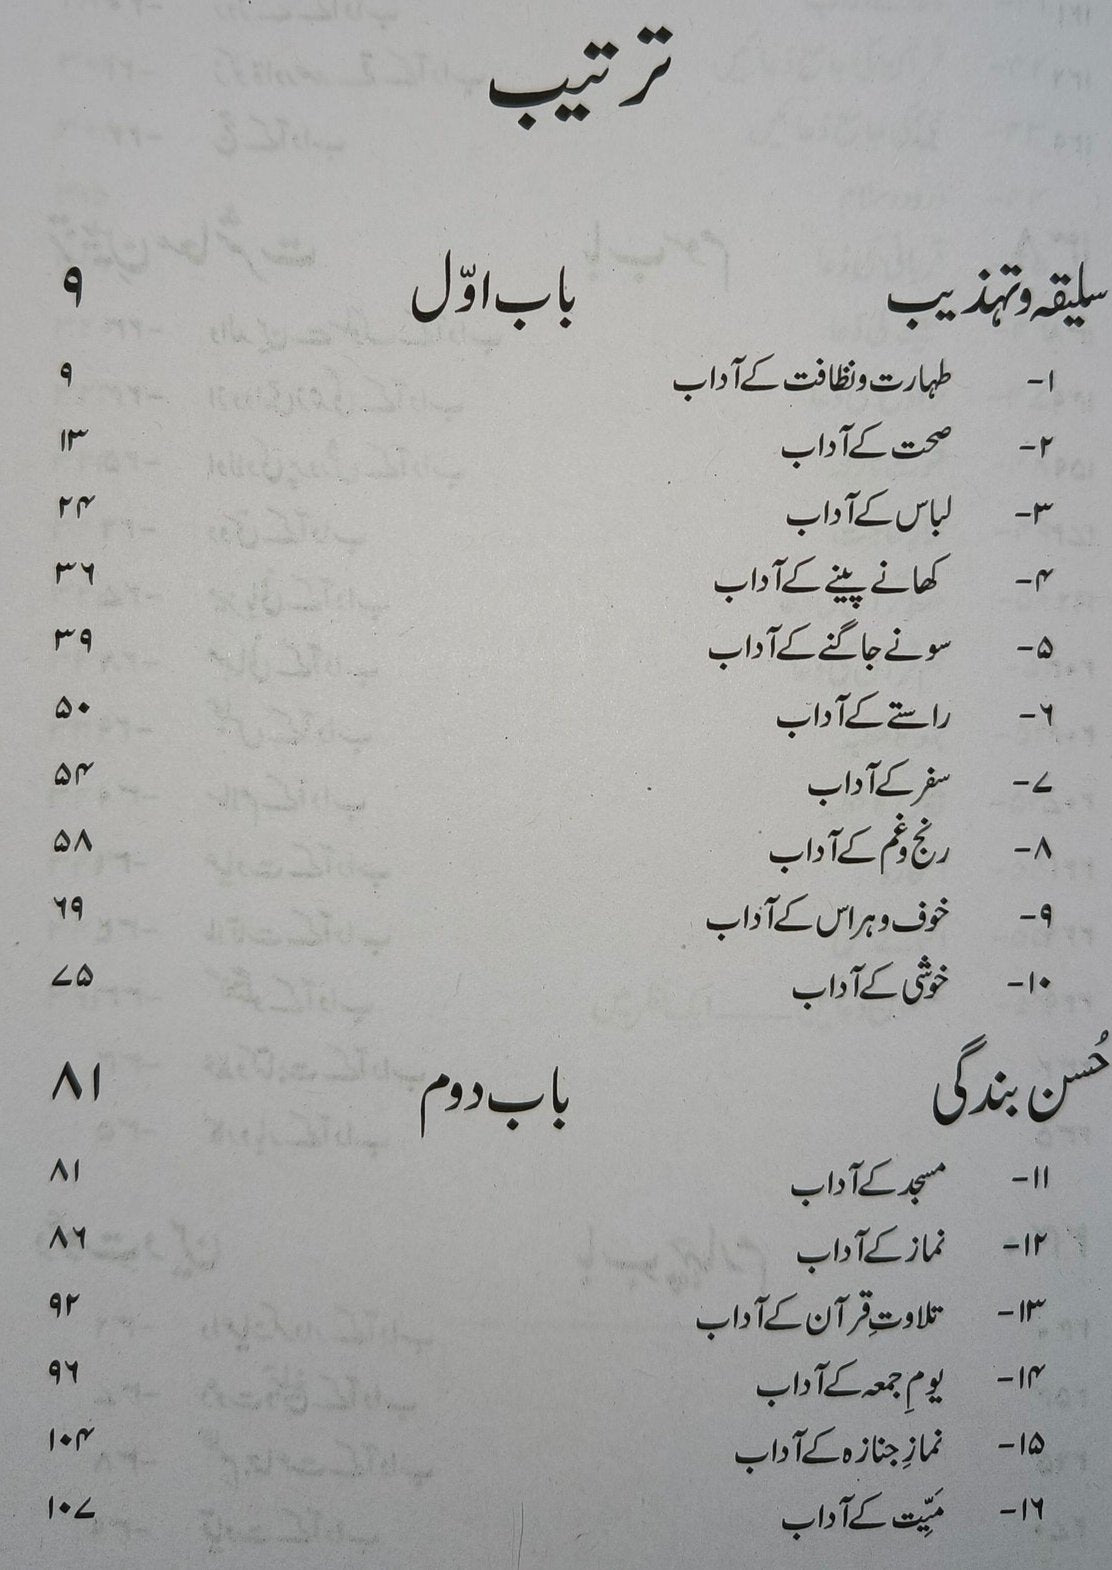 ترتیب
سلیقہ و تہذیب باب اوّل ۹
۱- طہارت و نظافت کے آداب ۹
۲- صحت کے آداب ۱۳
۳- لباس کے آداب ۲۴
۴- کھانے پینے کے آداب ۳۶
۵- سونے جاگنے کے آداب ۳۹
۶- راستے کے آداب ۵۰
۷- سفر کے آداب ۵۴
۸- رنج و غم کے آداب ۵۸
۹- خوف و ہراس کے آداب ۶۹
۱۰- خوشی کے آداب ۷۵
حُسن بندگی باب دوم ۸۱
۱۱- مسجد کے آداب ۸۱
۱۲- نماز کے آداب ۸۶
۱۳- تلاوتِ قرآن کے آداب ۹۲
۱۴- یومِ جمعہ کے آداب ۹۶
۱۵- نمازِ جنازہ کے آداب ۱۰۴
۱۶- مَیِّت کے آداب ۱۰۷